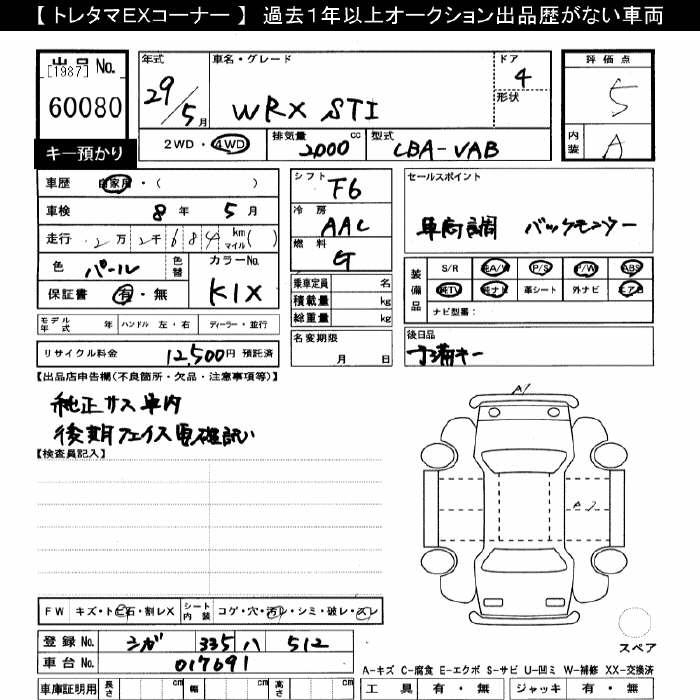 【 トレタマEXコーナー 】 過去1年以上オークション出品歴がない車両
出品 No.
[1987]
60080
キー預かり
年式
29/5月
車名・グレード
WRX STI
ドア
4
形状
評価点
5
内装
A
2WD・4WD
排気量
2,000 cc
型式
CBA-VAB
車歴 自家用・( )
車検 8 年 5 月
走行 2万 2千 6 8 4 km マイル ( )
色 パール
色替
カラーNo.
K1X
保証書 有・無
シフト
F6
冷房
AAC
燃料
G
乗車定員 名
積載量 kg
総重量 kg
セールスポイント
車高調 バックモニター
装備品
S/R 純A/W P/S P/W ABS
純TV 純ナビ 革シート 外ナビ エアB
ナビ型番:
モデル年式 年 ハンドル 左・右 ディーラー・並行
名変期限
月 日
後日品
予備キー
リサイクル料金 12,500円 預託済
【出品店申告欄(不良箇所・欠品・注意事項等)】
純正サス車内
後期フェイス要確認
【検査員記入】
A1
FW キズ・ト石・割レX シート内装 コゲ・穴・汚レ・シミ・破レ・スレ
登録 No. シガ 335 ハ 512
車台 No. 017691
スペア
A-キズ C-腐食 E-エクボ S-サビ U-凹ミ W-補修 XX-交換済
車庫証明用 長さ cm 幅 cm 高さ cm
工具 有・無 ジャッキ 有・無